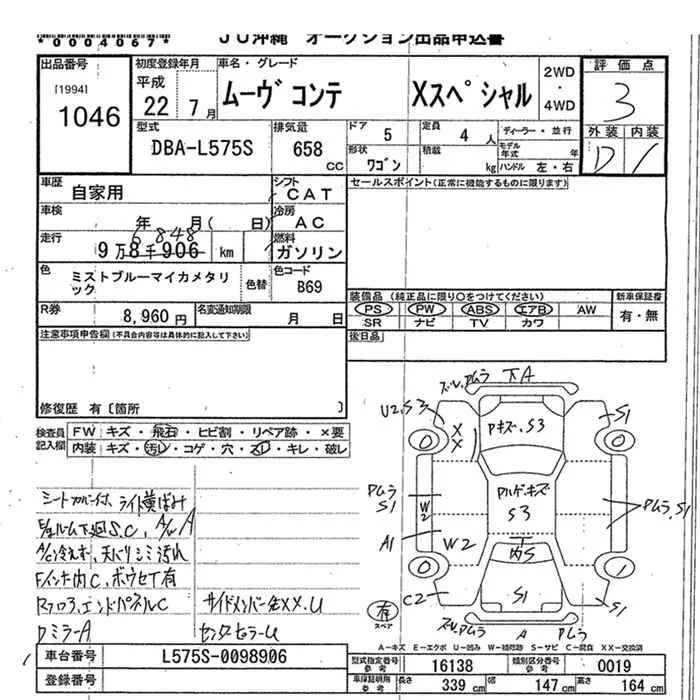 *0004067*
JU沖縄 オークション出品申込書
出品番号
[1994]
1046
初度登録年月
平成
22年 7月
車名・グレード
ムーヴ コンテ Xスペシャル
2WD
・
4WD
評価点
3
外装 内装
D 1
型式
DBA-L575S
排気量
658
CC
ドア 5
定員 4 人
ディーラー・並行
形状 ワゴン
積載 kg
モデル年式 年
ハンドル 左・右
車歴
自家用
シフト
CAT
セールスポイント(正常に機能するものに限ります)
車検
年 月( 日)
冷房
AC
走行
9万8千906 km
6848
燃料
ガソリン
色
ミストブルーマイカメタリック
色替
色コード
B69
装備品 (純正品に限り○をつけてください)
PS PW ABS エアB AW
SR ナビ TV カワ
新車保証書
有・無
R券
8,960円
名変通知期限
月 日
後日品
注意事項申告欄(不具合内容等は具体的に記入して下さい)
修復歴 有〔箇所 〕
検査員
記入欄
FW キズ・飛石・ヒビ割・リペア跡・×要
内装 キズ・汚レ・コゲ・穴・スレ・キレ・破レ
シートカバー付、ライト黄ばみ
E/gルーム下廻S.C、A/W A
A/C冷えず、天バリシミ汚れ
Fインナー内C、ボウセイ有
Rフロア、エンドパネルC
サイドメンバー左XX.U
ワミラーA
センターピラーU
スレPムラ 下A
U2,S3
S1
Pキズ、S3
X
X
Pムラ
S1
W
2
Pルーフキズ
S3
Pムラ,S1
A1
W2
内S
1
C2
S1
S1
有
スペア
スレPムラ A Pムラ
A-キズ E-エクボ U-凹み W-補修跡 S-サビ C-腐食 XX-交換済
車台番号
L575S-0098906
登録番号
型式指定番号
参考
16138
類別区分番号
参考
0019
車庫証明用
参考
長さ 339 cm
幅 147 cm
高さ 164 cm